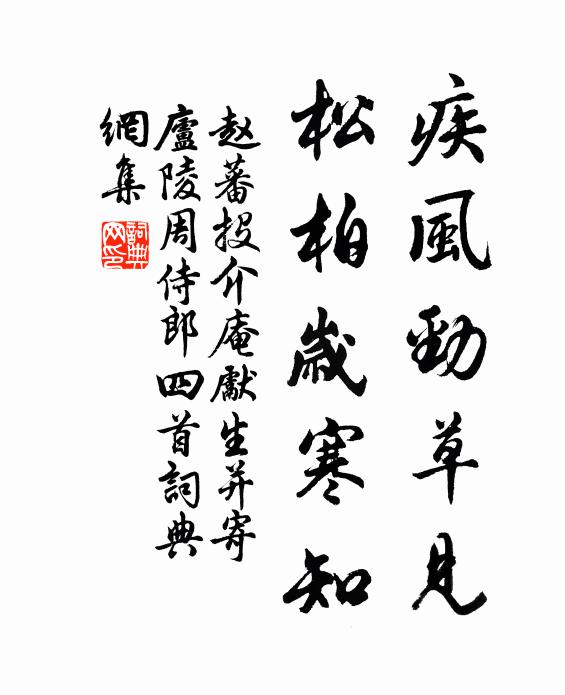 疾風勁草見
松柏歲寒知
赵蕃投介庵獻生并寄
廬陵周侍郎四首詞典
網集
詞典
网印